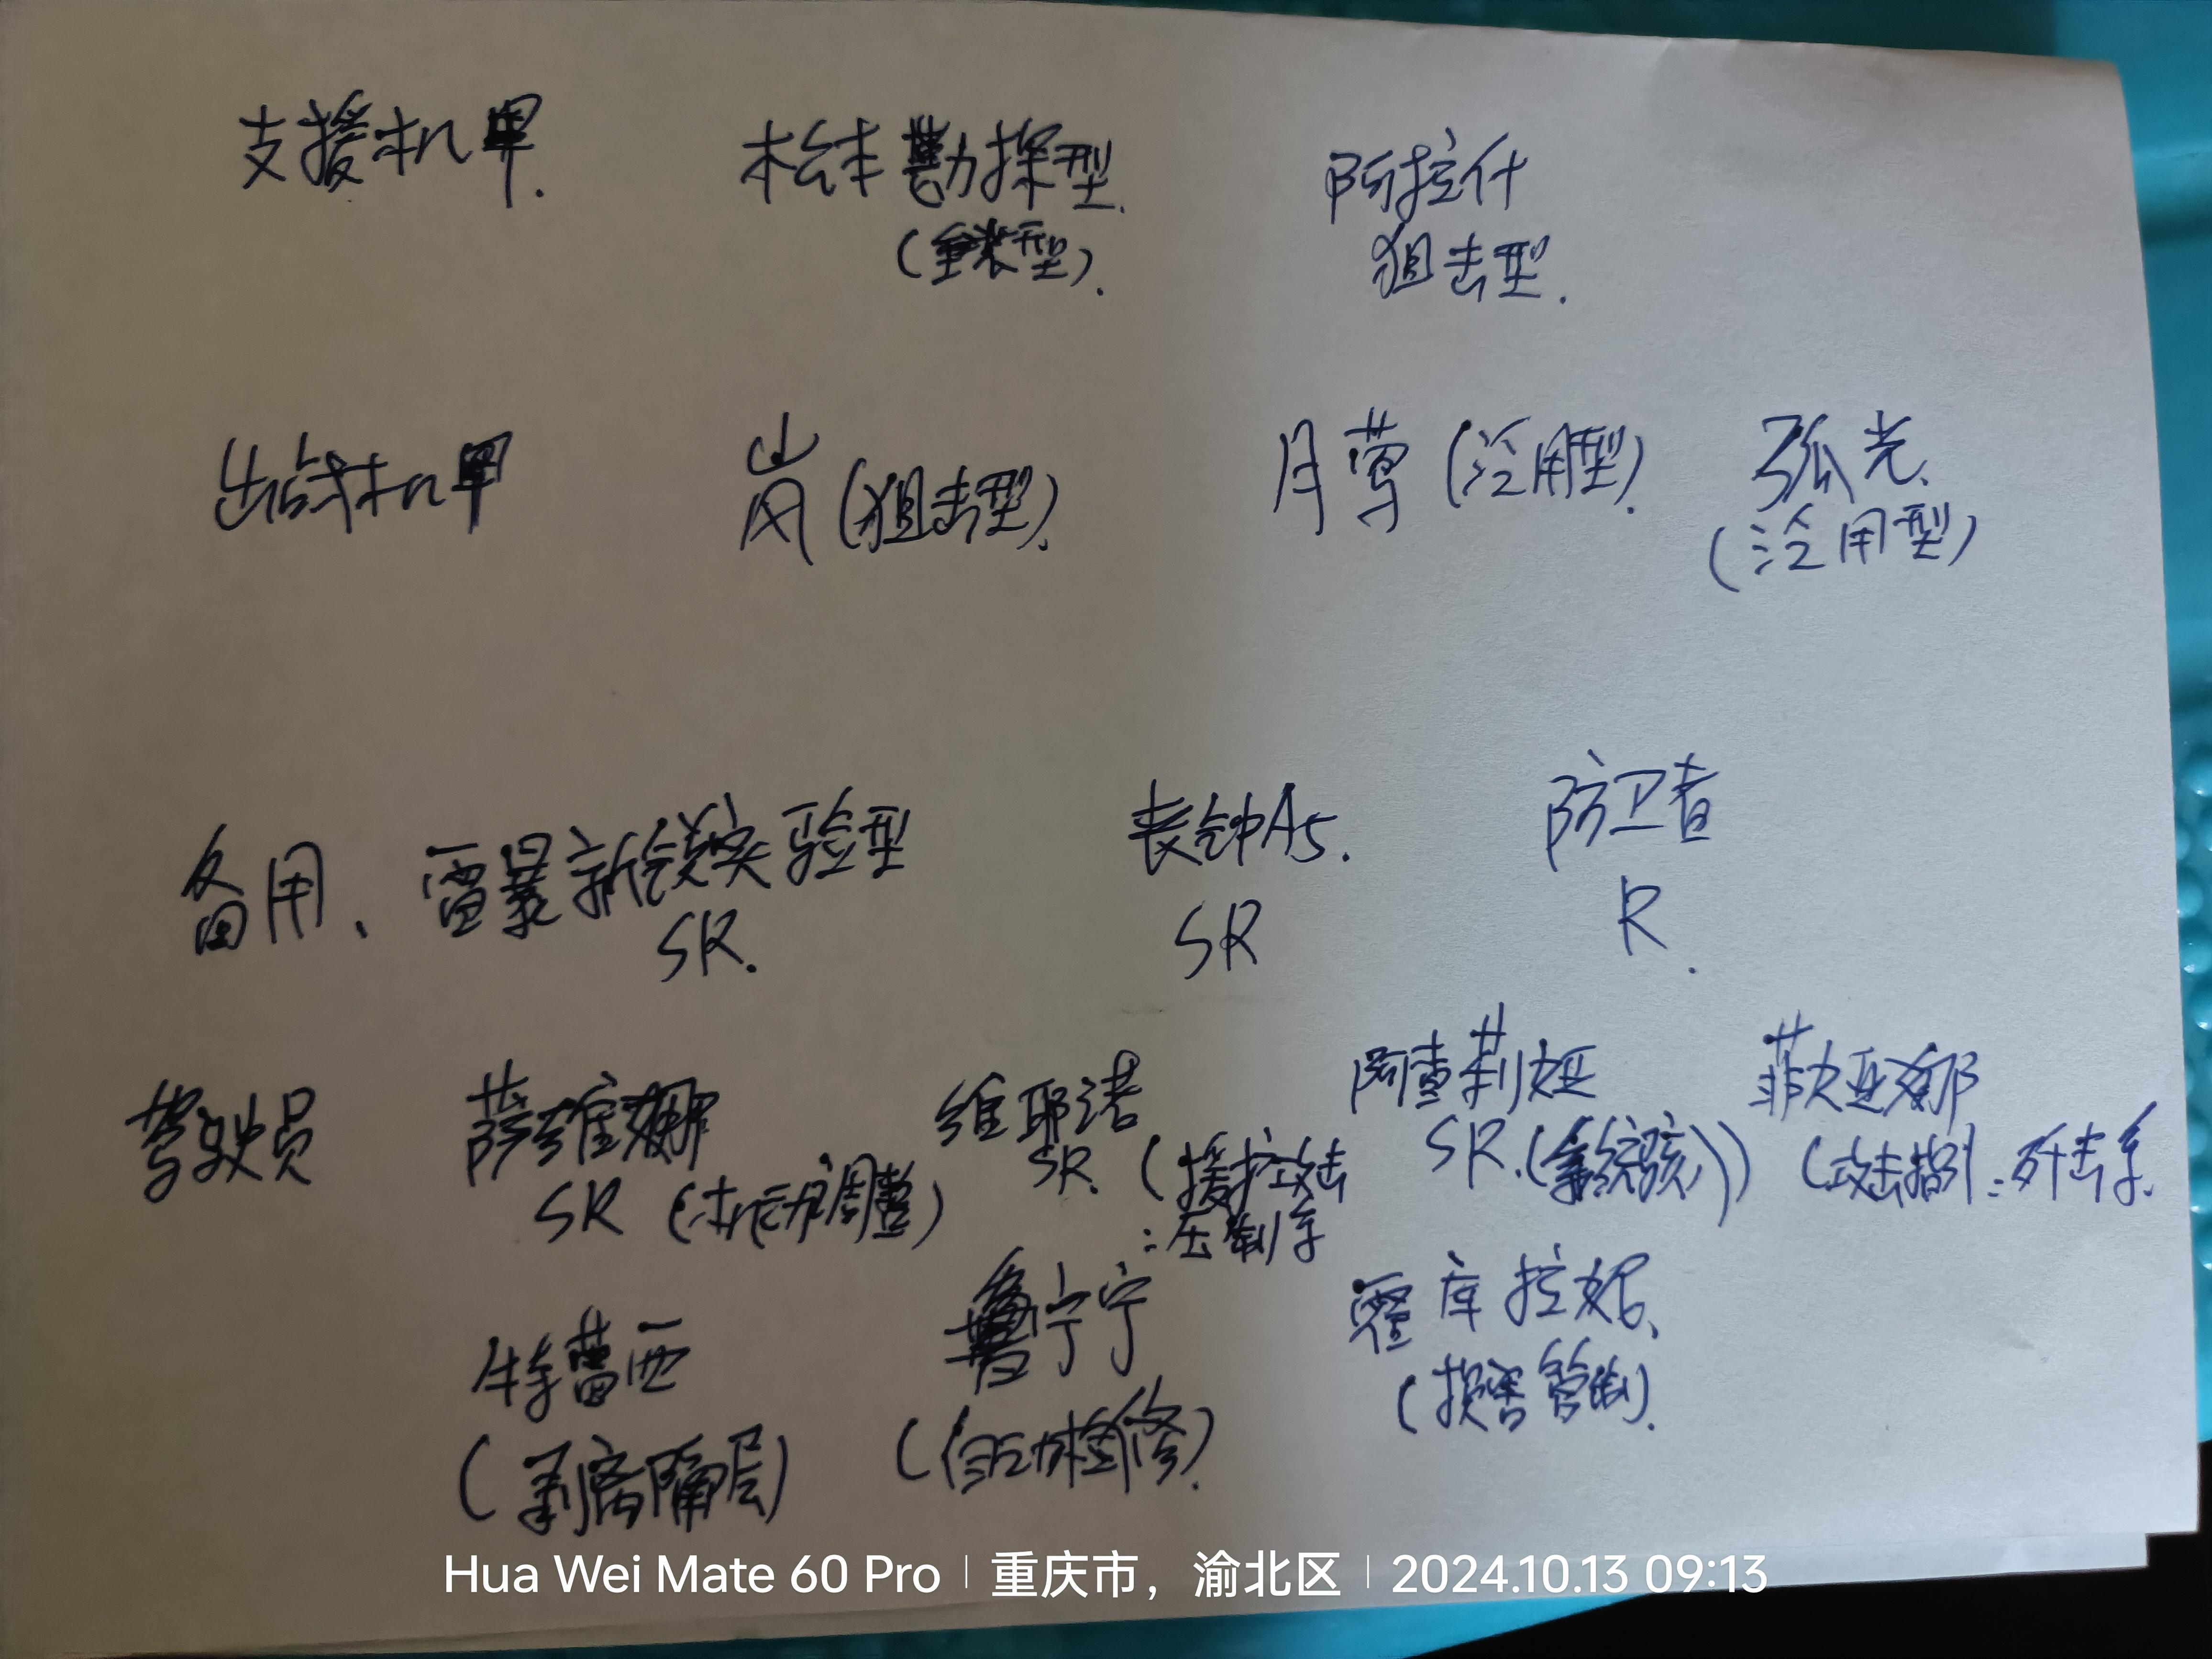 支援机甲.
松本勘探型.
(重装型).
阿拉什
狙击型.
出战机甲
岚(狙击型).
月莺(泛用型).
弧光、
(泛用型)
备用、雷暴新锐实验型
SR.
丧钟A5.
SR
防卫者
R.
驾驶员
萨维娜
SR (机动调整)
维耶诺
SR. (援护攻击
:压制系
阿查莉娅
SR.
菲大亚娜
(攻击指引:歼击系.
特蕾西
(剥离隔层)
鲁宁宁
(自动检修).
霍库拉妮、
(损害管制).
Hua Wei Mate 60 Pro | 重庆市，渝北区 | 2024.10.13 09:13